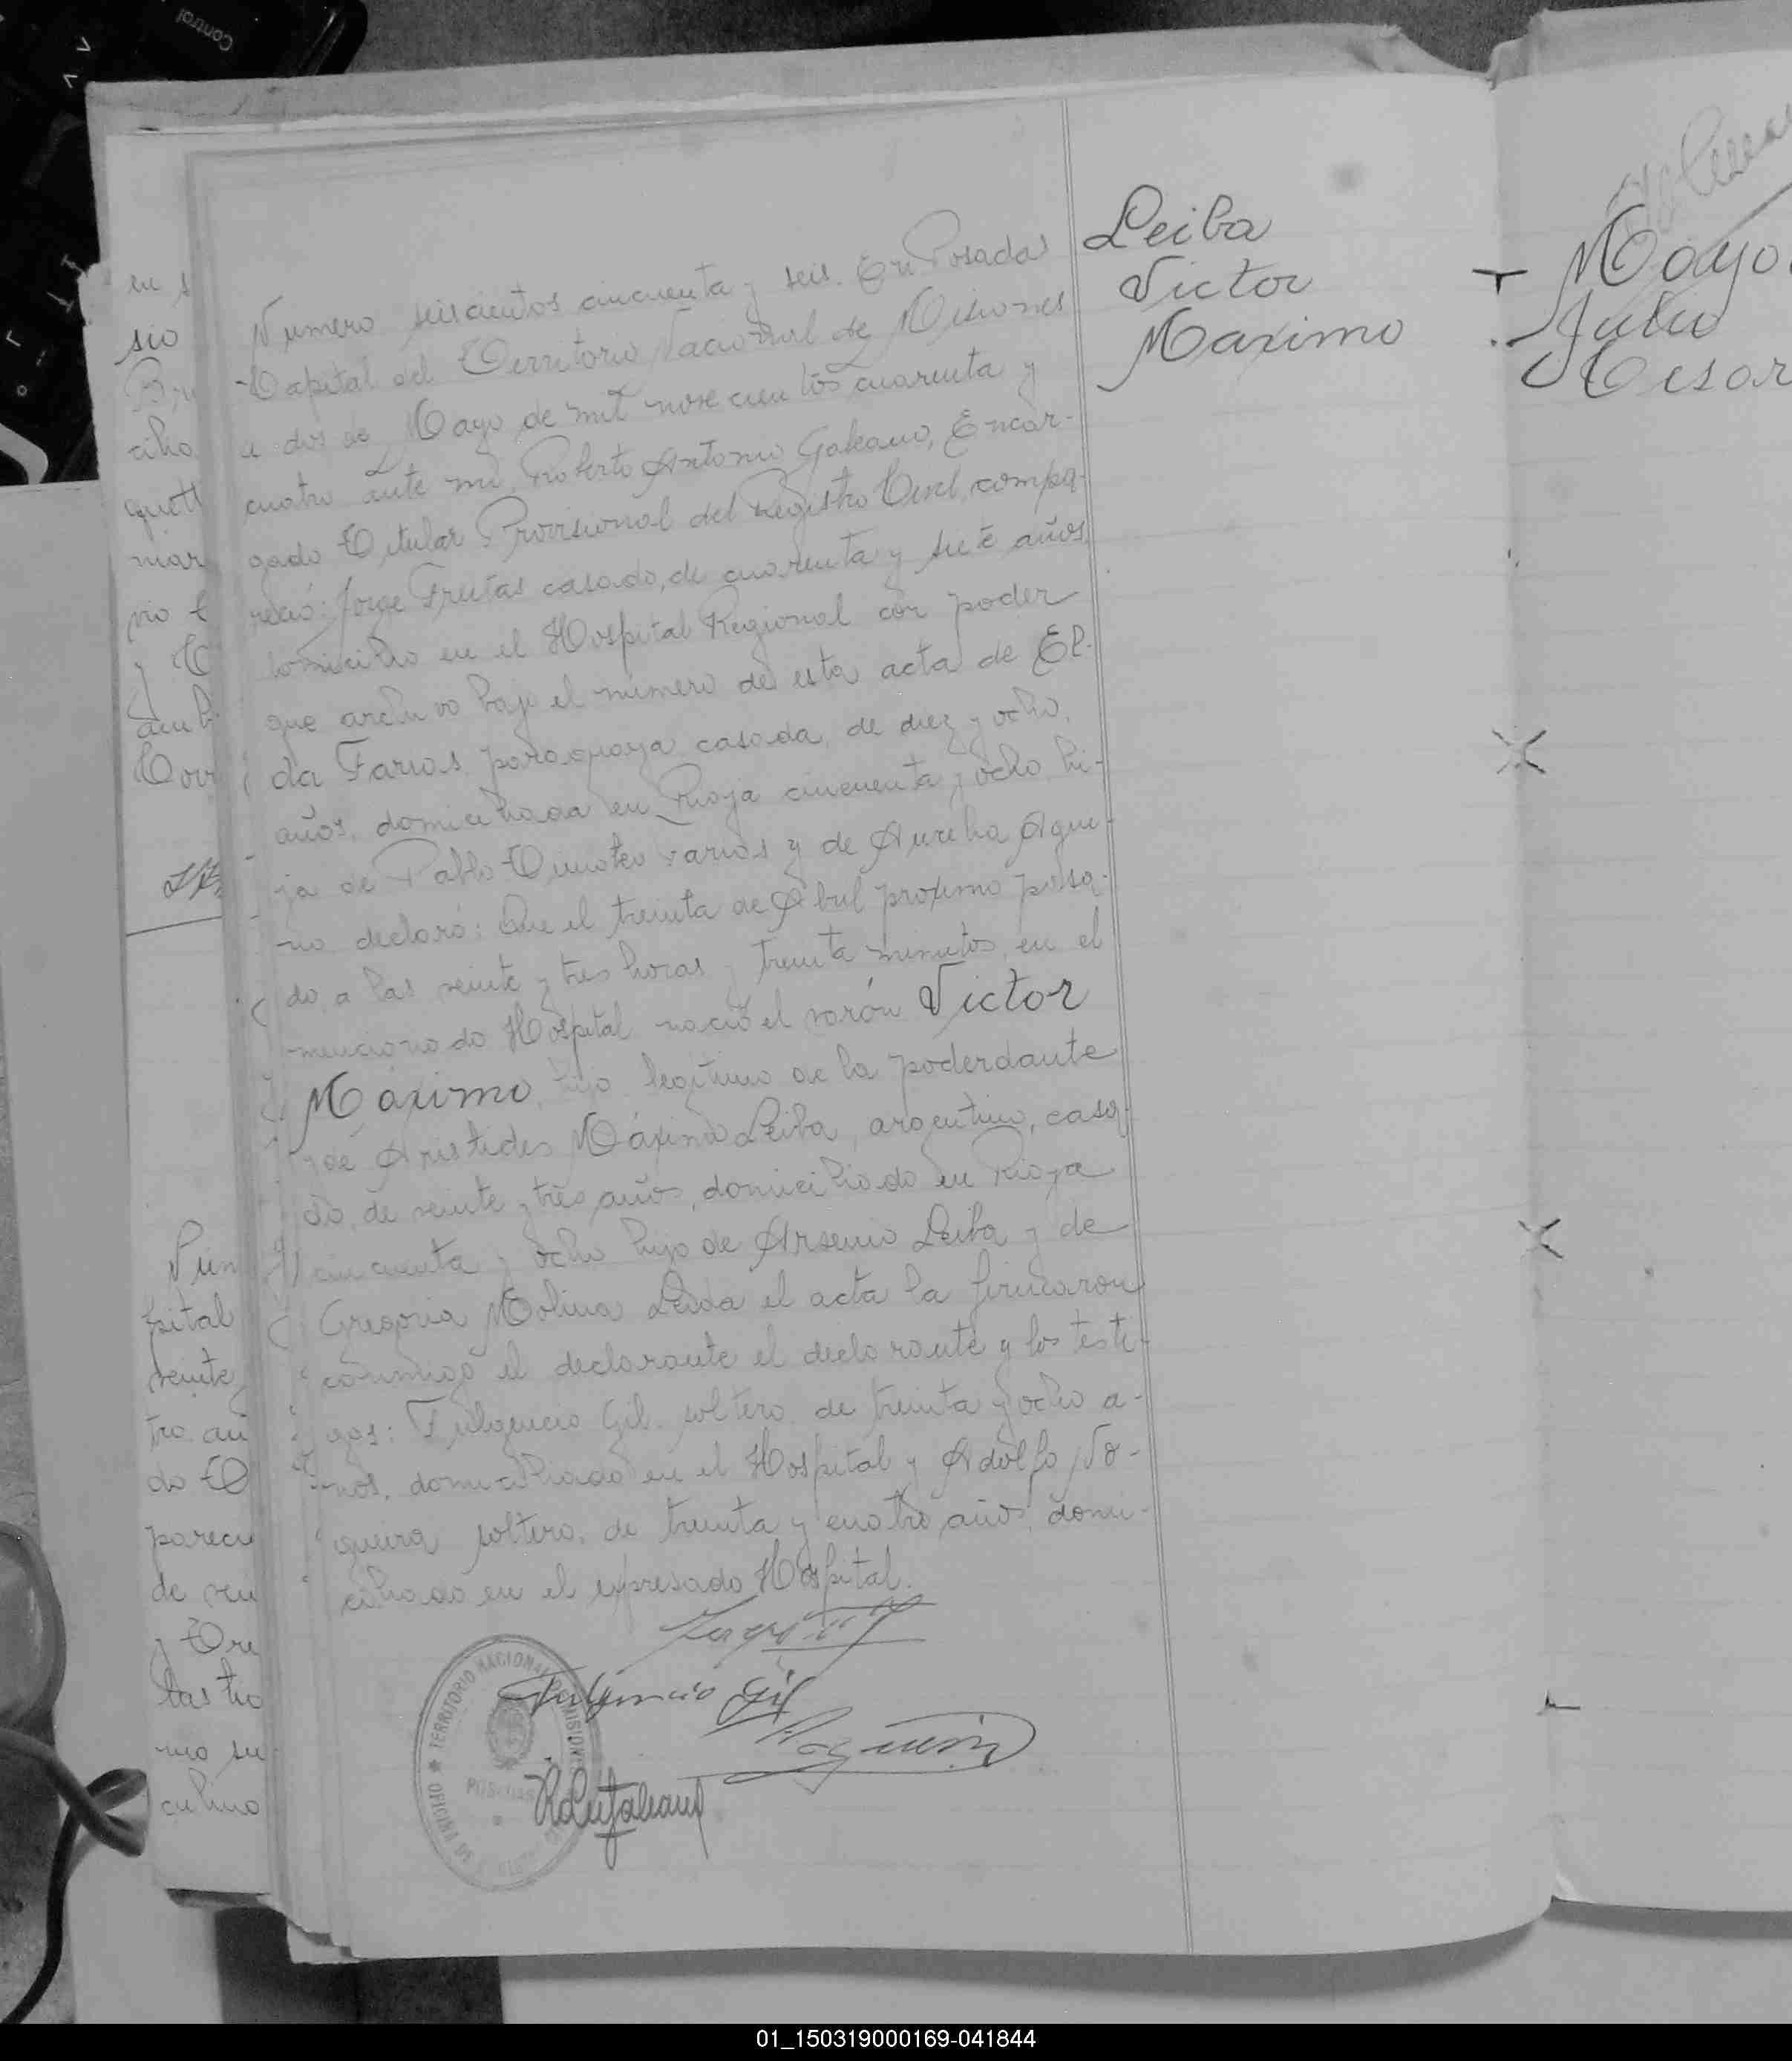 Leiba
Victor
Maximo
Numero seiscientos cincuenta y seis. En Posadas
Capital del Territorio Nacional de Misiones
a dos de Mayo de mil novecientos cuarenta y
cuatro ante mi, Roberto Antonio Galeano, Encar-
gado Titular Provisional del Registro Civil, compa-
reció: Jorge Freitas casado, de cuarenta y siete años,
domicilio en el Hospital Regional con poder
que archivo bajo el número de esta acta de El-
da Farias, paraguaya casada, de diez y ocho
años, domiciliada en Rioja cincuenta y ocho, hi-
ja de Pablo Timoteo Farias y de Aurelia Aqui-
no declaró: Que el treinta de Abril próximo pasa-
do, a las veinte y tres horas y treinta minutos, en el
mencionado Hospital nació el varón Victor
Máximo, hijo legítimo de la poderdante
y de Aristides Máximo Leiba, argentino, casa-
do, de veinte y tres años, domiciliado en Rioja
cincuenta y ocho hijo de Arsenio Leiba y de
Gregoria Molina Leida el acta la firmaron
conmigo el declarante el declarante y los testi-
gos: Fulgencio Gil, soltero, de treinta y ocho a-
ños, domiciliado en el Hospital y Adolfo No-
guera soltero, de treinta y cuatro años, domi-
ciliado en el expresado Hospital.
Fulgencio Gil
TERRITORIO NACIONAL DE MISIONES
POSADAS
en s
sio
mar
y
Corr
Num
pital
veinte
tro añ
do
parecu
de vei
culino
Mayo
Julio
Cesar
01_150319000169-041844